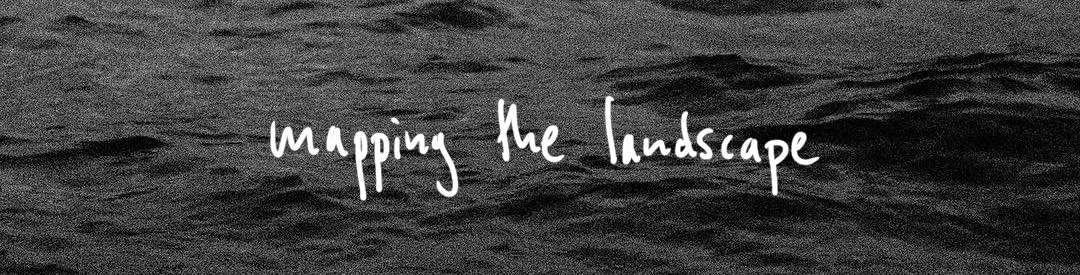 mapping the landscape